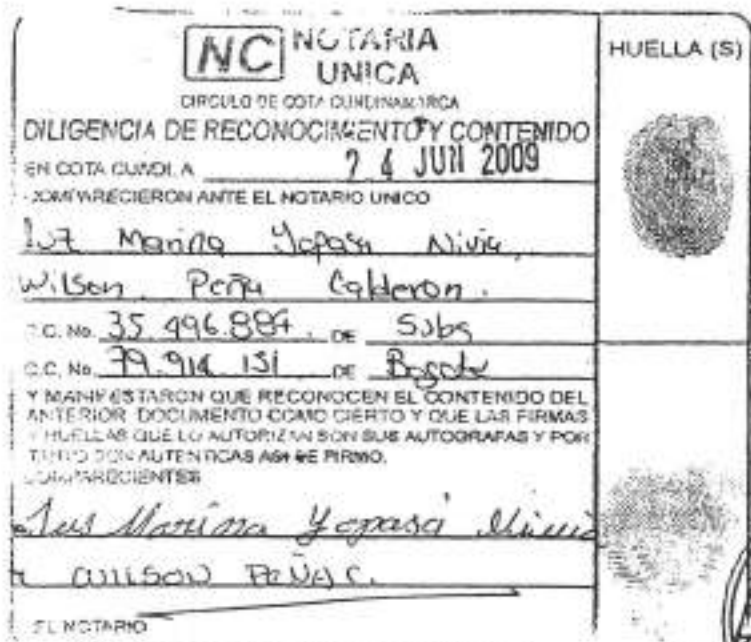 NC NOTARIA
UNICA
CIRCULO DE COTA CUNDINAMARCA
HUELLA (S)
DILIGENCIA DE RECONOCIMIENTO Y CONTENIDO
EN COTA CUNDI, A 24 JUN 2009
COMPARECIERON ANTE EL NOTARIO UNICO
Luz Marina Yopasa Nivia,
Wilson Peña Calderon.
C.C. No. 35.496.884. DE Suba
C.C. No. 79.914 151 DE Bogota
Y MANIFESTARON QUE RECONOCEN EL CONTENIDO DEL
ANTERIOR DOCUMENTO COMO CIERTO Y QUE LAS FIRMAS
Y HUELLAS QUE LO AUTORIZAN SON SUS AUTOGRAFAS Y POR
TANTO SON AUTENTICAS ASI SE FIRMO.
COMPARECIENTES
Luz Marina Yopasá Nivia
WILSON PEÑA C.
EL NOTARIO